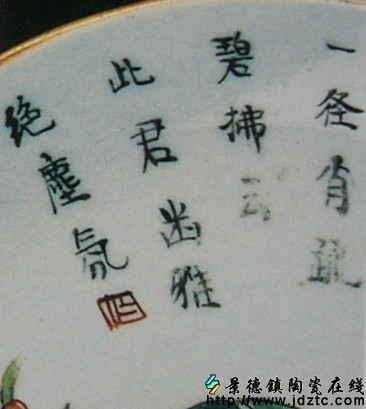 一径肖疏
碧拂云
此君幽雅
绝塵氛
景德鎮陶瓷在線
http://www.jdztc.com